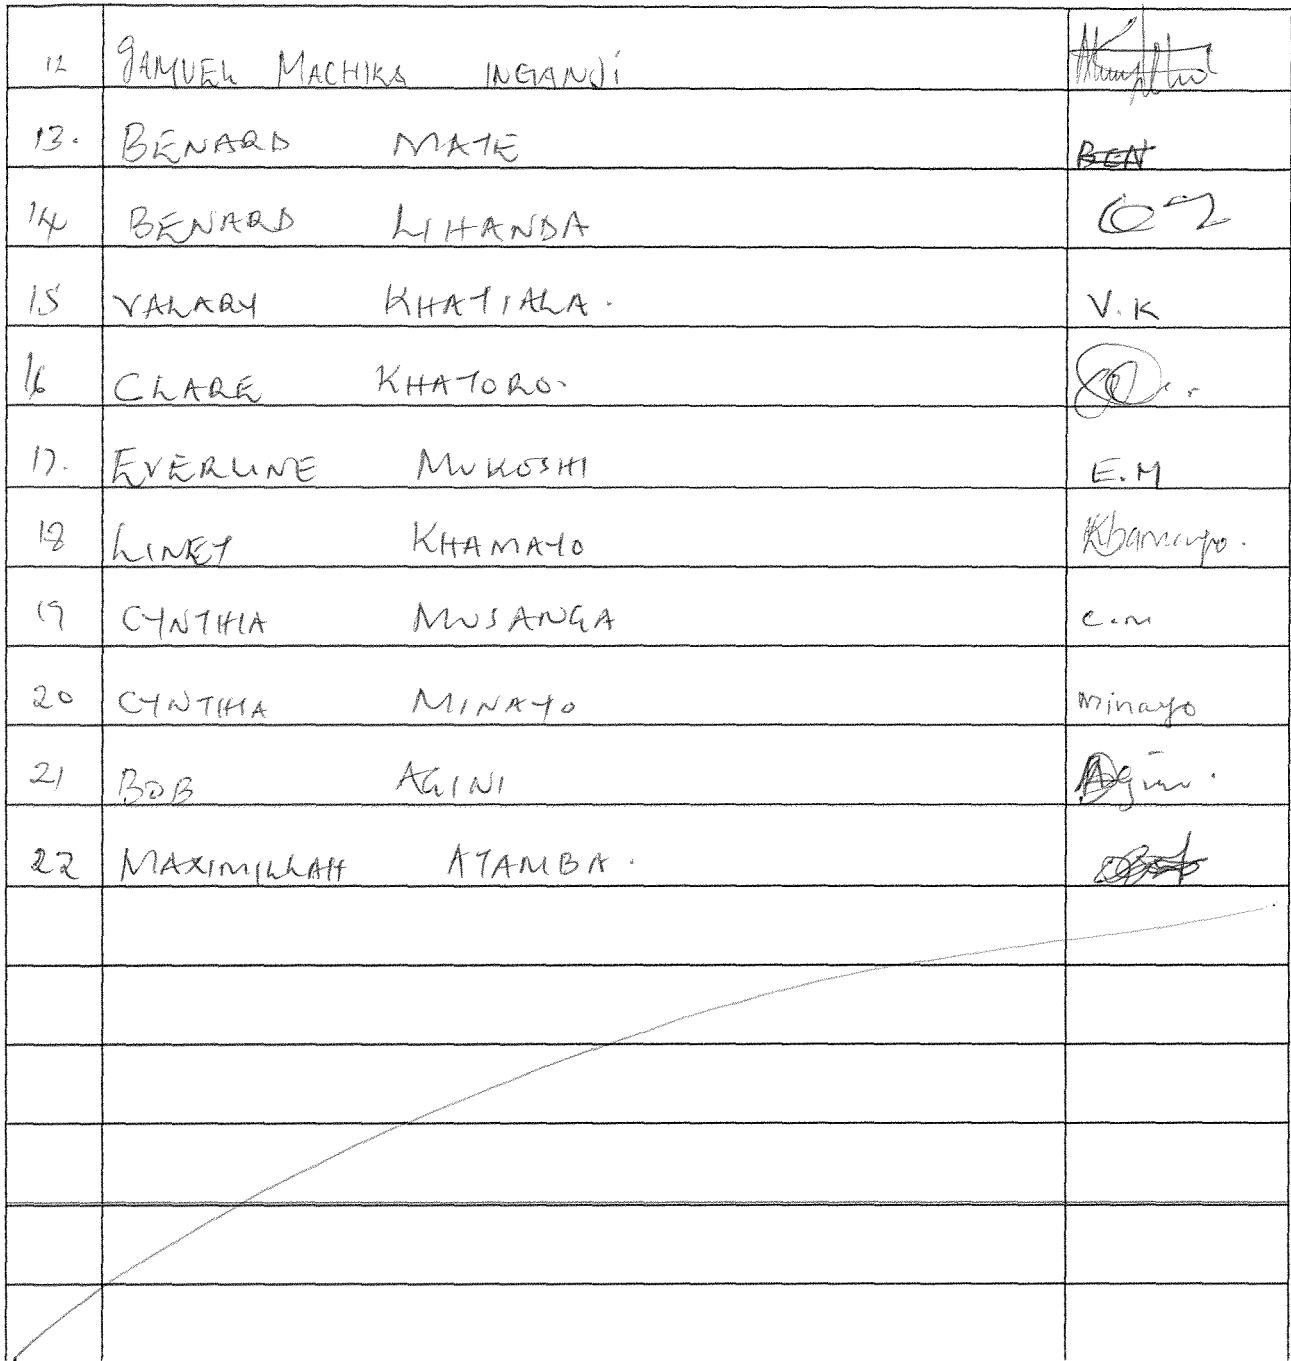 12 SAMUEL MACHIKA INGANJi
13. BENARD MATE BEN
14 BENARD LIHANDA
15 VALARY KHATIALA. V.K
16 CLARE KHATORO.
17. EVERLINE MUKOSHI E.M
18 LINEY KHAMAYO Khamayo.
19 CYNTHIA MUSANGA c.m
20 CYNTHIA MINAYO Minayo
21 BOB AGINI Agini.
22 MAXIMILLAH ATAMBA.